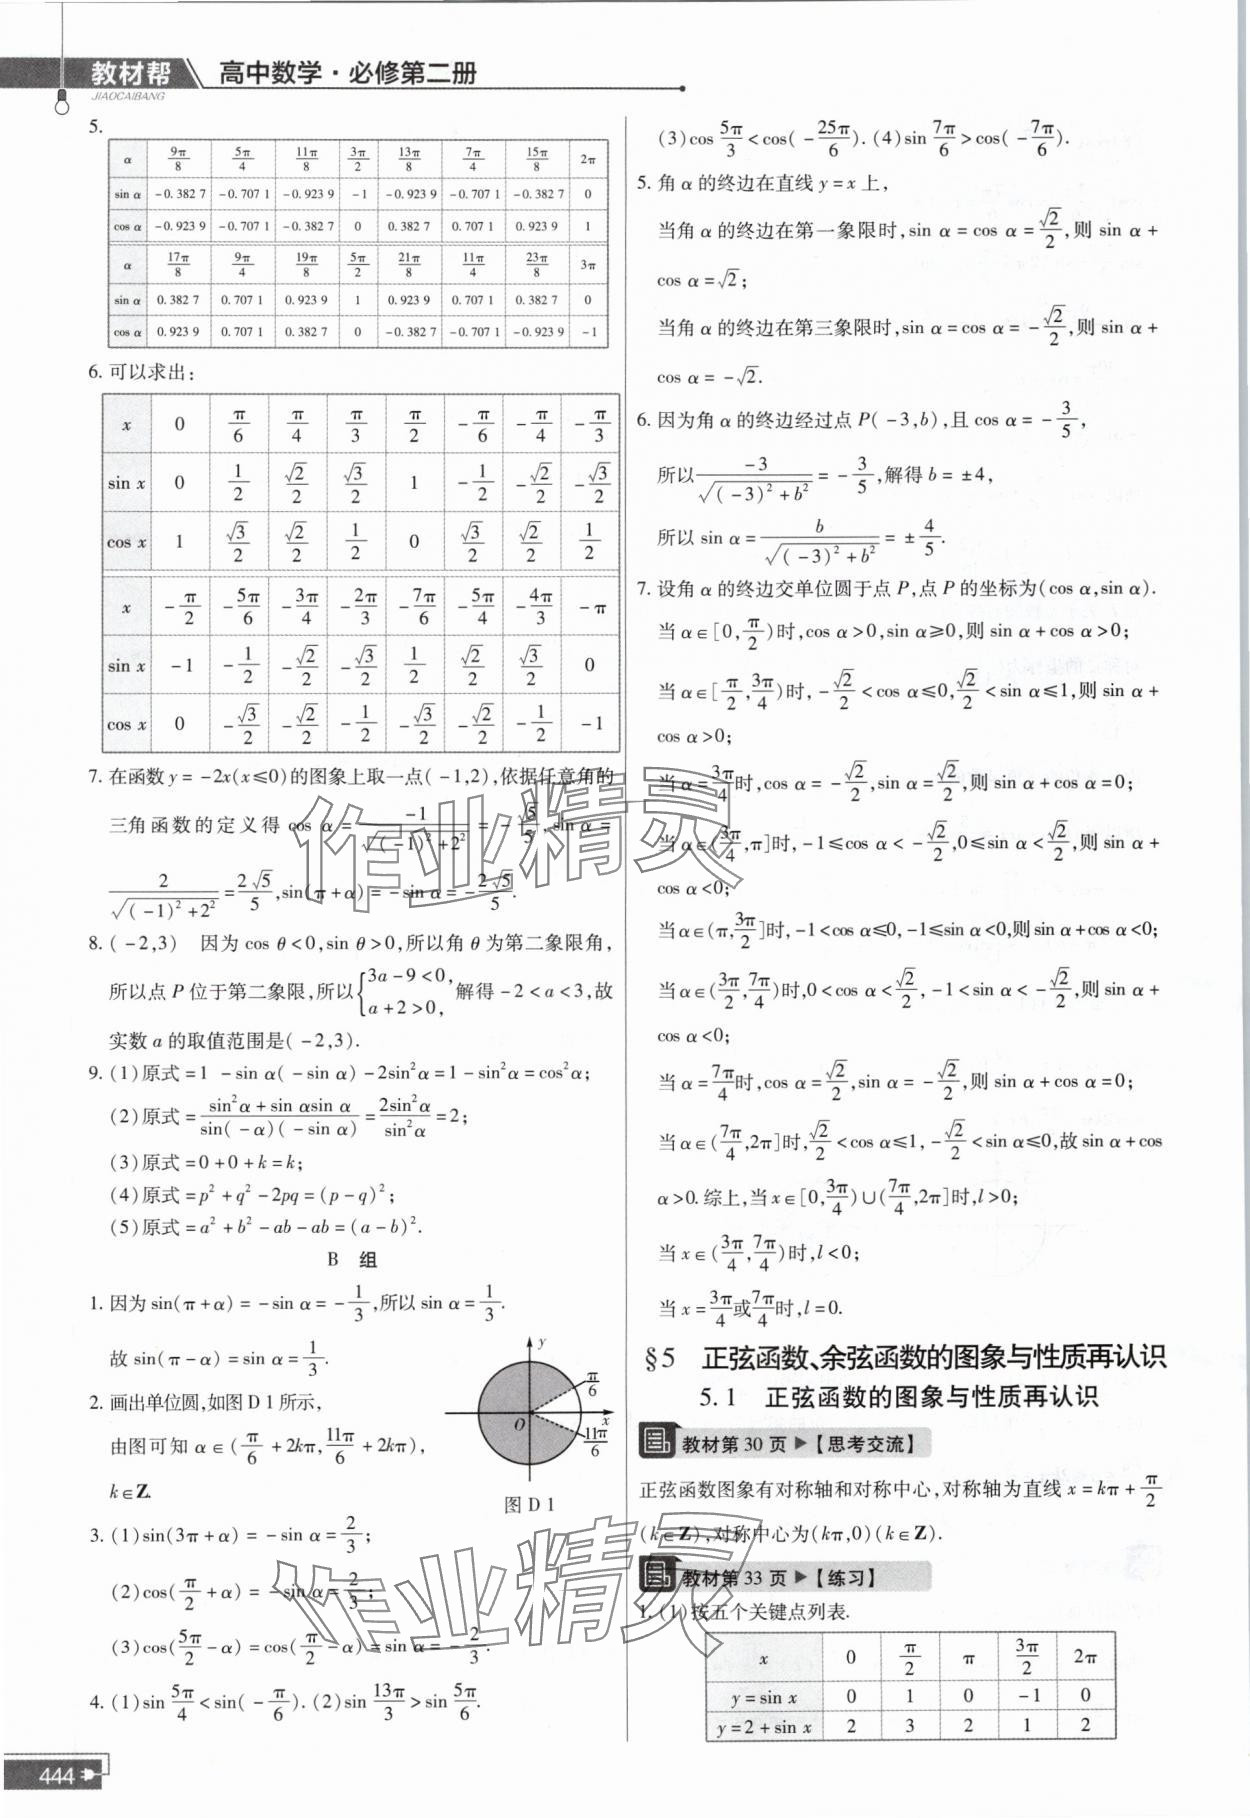 教材帮 高中数学·必修第二册
JIAOCAIBANG
5.
α 9π/8 5π/4 11π/8 3π/2 13π/8 7π/4 15π/8 2π
sin α -0.382 7 -0.707 1 -0.923 9 -1 -0.923 9 -0.707 1 -0.382 7 0
cos α -0.923 9 -0.707 1 -0.382 7 0 0.382 7 0.707 1 0.923 9 1
α 17π/8 9π/4 19π/8 5π/2 21π/8 11π/4 23π/8 3π
sin α 0.382 7 0.707 1 0.923 9 1 0.923 9 0.707 1 0.382 7 0
cos α 0.923 9 0.707 1 0.382 7 0 -0.382 7 -0.707 1 -0.923 9 -1
6. 可以求出:
x 0 π/6 π/4 π/3 π/2 -π/6 -π/4 -π/3
sin x 0 1/2 √2/2 √3/2 1 -1/2 -√2/2 -√3/2
cos x 1 √3/2 √2/2 1/2 0 √3/2 √2/2 1/2
x -π/2 -5π/6 -3π/4 -2π/3 -7π/6 -5π/4 -4π/3 -π
sin x -1 -1/2 -√2/2 -√3/2 1/2 √2/2 √3/2 0
cos x 0 -√3/2 -√2/2 -1/2 -√3/2 -√2/2 -1/2 -1
7. 在函数 y=-2x(x≤0)的图象上取一点(-1,2),依据任意角的
三角函数的定义得 cos α=-1/√((-1)²+2²)=-√5/5,sin α=
2/√((-1)²+2²)=2√5/5,sin(π+α)=-sin α=-2√5/5.
8. (-2,3) 因为 cos θ<0,sin θ>0,所以角 θ 为第二象限角,
所以点 P 位于第二象限,所以{3a-9<0, a+2>0,解得-2<a<3,故
实数 a 的取值范围是(-2,3).
9. (1)原式=1 -sin α(-sin α)-2sin²α=1-sin²α=cos²α;
(2)原式=(sin²α+sin αsin α)/(sin(-α)(-sin α))=2sin²α/sin²α=2;
(3)原式=0+0+k=k;
(4)原式=p²+q²-2pq=(p-q)²;
(5)原式=a²+b²-ab-ab=(a-b)².
B 组
1. 因为 sin(π+α)=-sin α=-1/3,所以 sin α=1/3.
故 sin(π-α)=sin α=1/3.
2. 画出单位圆,如图 D 1 所示,
由图可知 α∈(π/6+2kπ,11π/6+2kπ),
k∈Z.
y π/6 O x 11π/6
图 D 1
3. (1)sin(3π+α)=-sin α=2/3;
(2)cos(π/2+α)=-sin α=2/3;
(3)cos(5π/2-α)=cos(π/2-α)=sin α=-2/3.
4. (1)sin 5π/4<sin(-π/6). (2)sin 13π/3>sin 5π/6.
444
(3)cos 5π/3<cos(-25π/6). (4)sin 7π/6>cos(-7π/6).
5. 角 α 的终边在直线 y=x 上,
当角 α 的终边在第一象限时,sin α=cos α=√2/2,则 sin α+
cos α=√2;
当角 α 的终边在第三象限时,sin α=cos α=-√2/2,则 sin α+
cos α=-√2.
6. 因为角 α 的终边经过点 P(-3,b),且 cos α=-3/5,
所以 -3/√((-3)²+b²)=-3/5,解得 b=±4,
所以 sin α=b/√((-3)²+b²)=±4/5.
7. 设角 α 的终边交单位圆于点 P,点 P 的坐标为(cos α,sin α).
当 α∈[0,π/2)时,cos α>0,sin α≥0,则 sin α+cos α>0;
当 α∈[π/2,3π/4)时,-√2/2<cos α≤0,√2/2<sin α≤1,则 sin α+
cos α>0;
当 α=3π/4时,cos α=-√2/2,sin α=√2/2,则 sin α+cos α=0;
当 α∈(3π/4,π]时,-1≤cos α<-√2/2,0≤sin α<√2/2,则 sin α+
cos α<0;
当 α∈(π,3π/2]时,-1<cos α≤0,-1≤sin α<0,则 sin α+cos α<0;
当 α∈(3π/2,7π/4)时,0<cos α<√2/2,-1<sin α<-√2/2,则 sin α+
cos α<0;
当 α=7π/4时,cos α=√2/2,sin α=-√2/2,则 sin α+cos α=0;
当 α∈(7π/4,2π]时,√2/2<cos α≤1,-√2/2<sin α≤0,故 sin α+cos
α>0. 综上,当 x∈[0,3π/4)∪(7π/4,2π]时,l>0;
当 x∈(3π/4,7π/4)时,l<0;
当 x=3π/4或7π/4时,l=0.
§5 正弦函数、余弦函数的图象与性质再认识
5.1 正弦函数的图象与性质再认识
教材第 30 页▶【思考交流】
正弦函数图象有对称轴和对称中心,对称轴为直线 x=kπ+π/2
(k∈Z),对称中心为(kπ,0)(k∈Z).
教材第 33 页▶【练习】
1. (1)按五个关键点列表.
x 0 π/2 π 3π/2 2π
y=sin x 0 1 0 -1 0
y=2+sin x 2 3 2 1 2
作业精灵
作业精灵